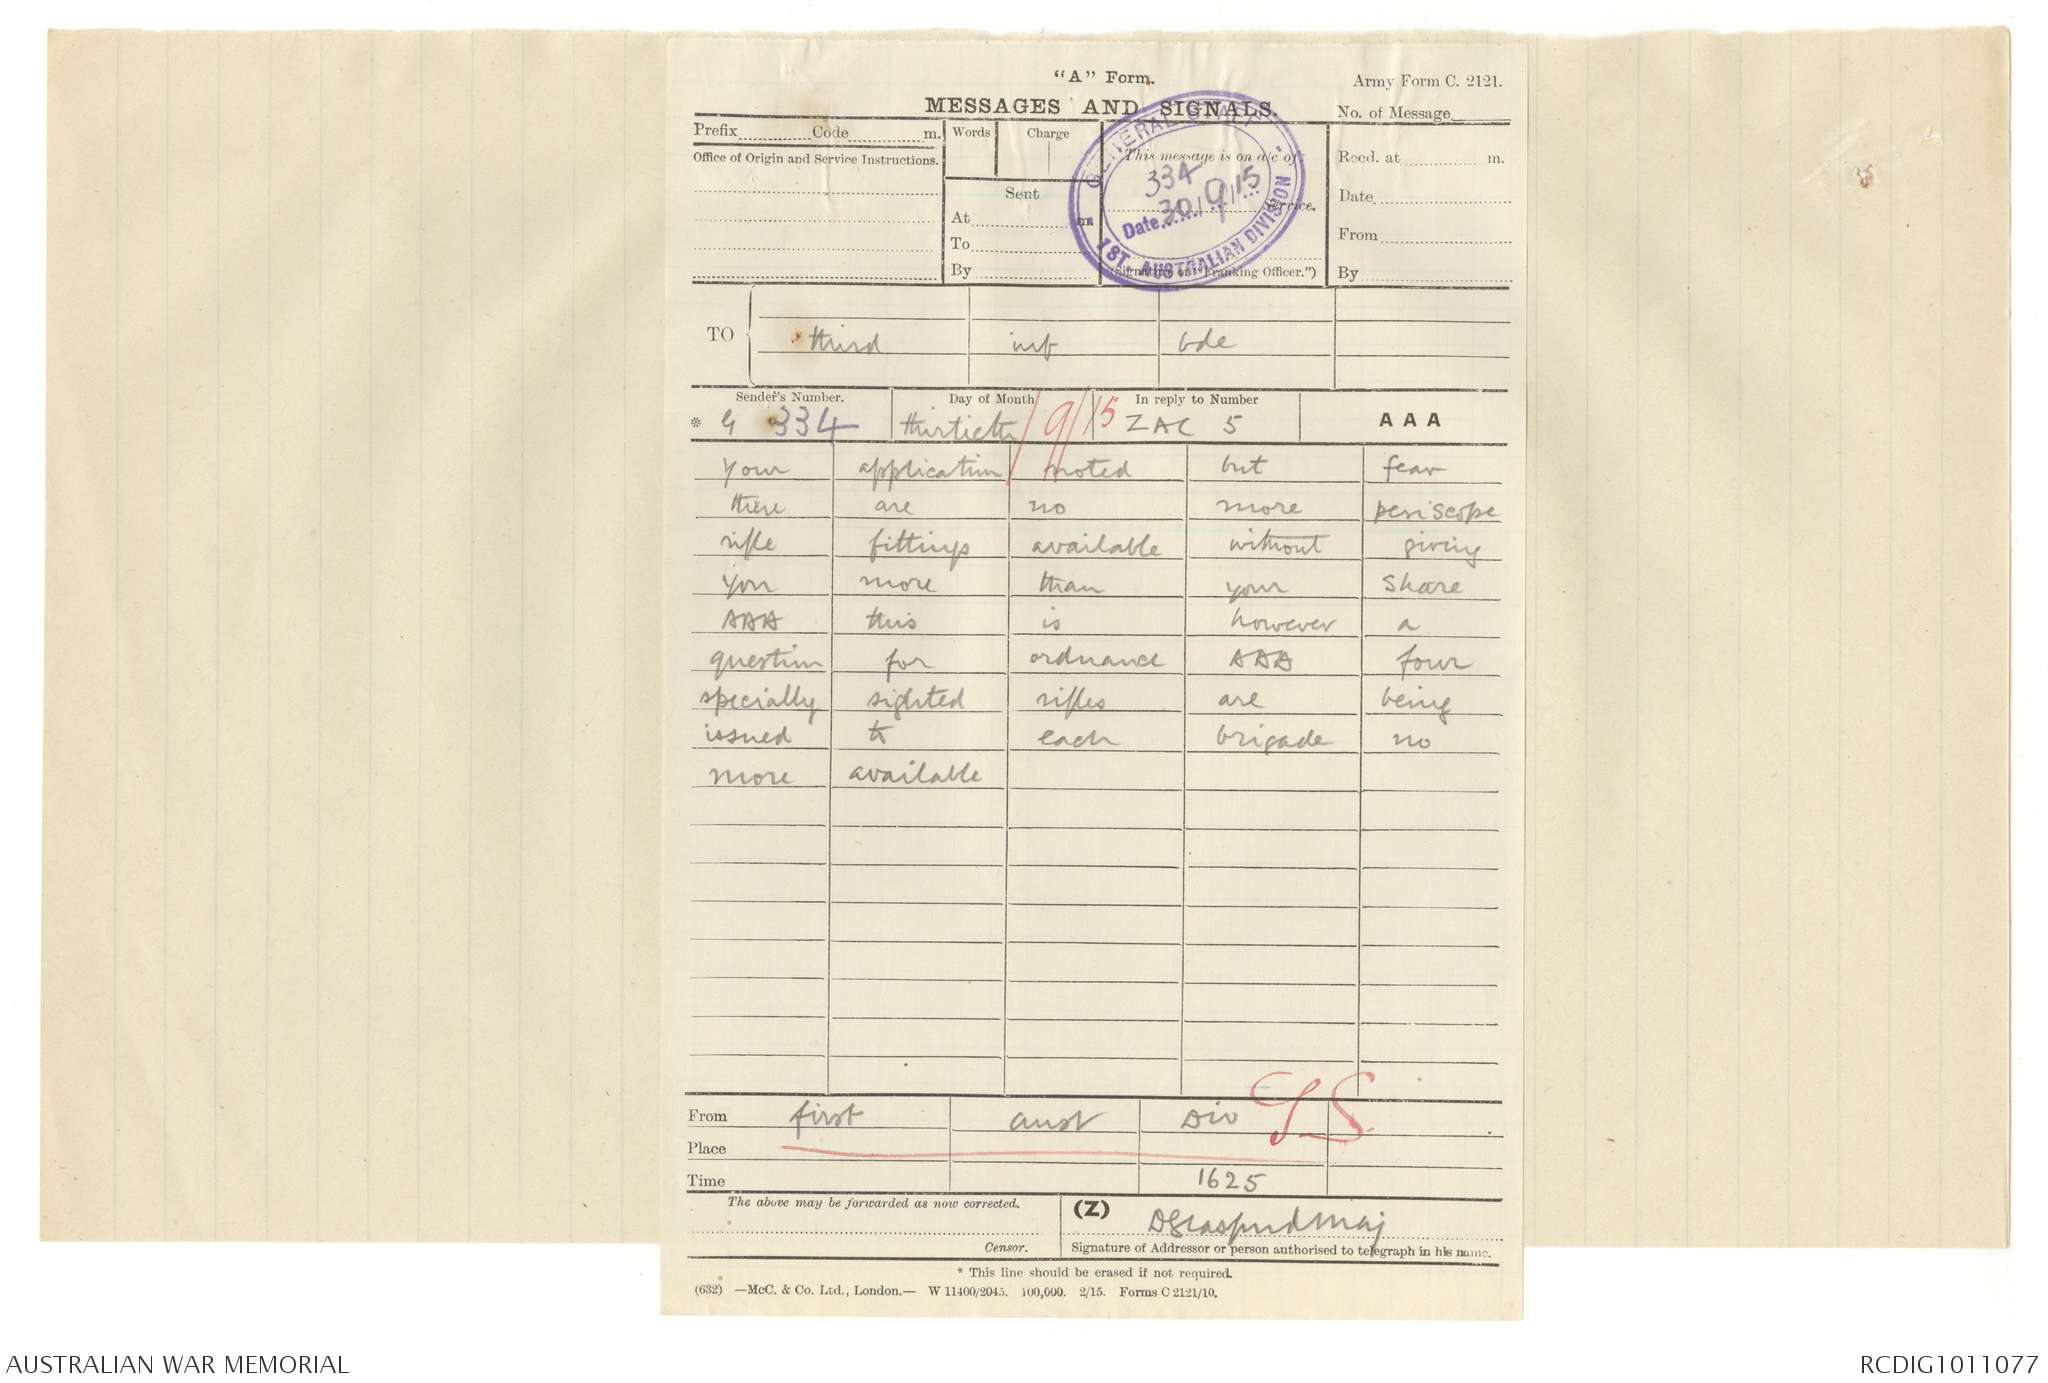 "A" Form.
Army Form C. 2121.
MESSAGES AND SIGNALS.
No. of Message
Prefix Code m.
Words Charge
This message is on a/c of:
Recd. at m.
Office of Origin and Service Instructions.
Sent
At m.
To
By
Service.
(Signature of "Franking Officer.")
Date
From
By
GENERAL STAFF
334
Date 30/9/15
1ST. AUSTRALIAN DIVISION
TO third inf bde
Sender's Number. Day of Month In reply to Number
* G 334 thirtieth /9/15 ZAC 5 AAA
your application noted but fear
there are no more periscope
rifle fittings available without giving
you more than your share
AAA this is however a
question for ordnance AAA four
specially sighted rifles are being
issued to each brigade no
more available
From first aust Div GS
Place
Time 1625
The above may be forwarded as now corrected. (Z)
Maj
Censor. Signature of Addressor or person authorised to telegraph in his name.
* This line should be erased if not required.
(632) —McC. & Co. Ltd., London.— W 11400/2045. 100,000. 2/15. Forms C 2121/10.
AUSTRALIAN WAR MEMORIAL
RCDIG1011077